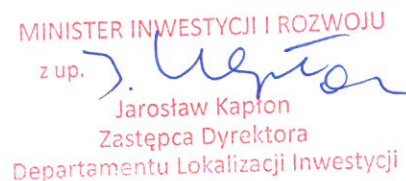 MINISTER INWESTYCJI I ROZWOJU
z up. J. Kapłon
Jarosław Kapłon
Zastępca Dyrektora
Departamentu Lokalizacji Inwestycji